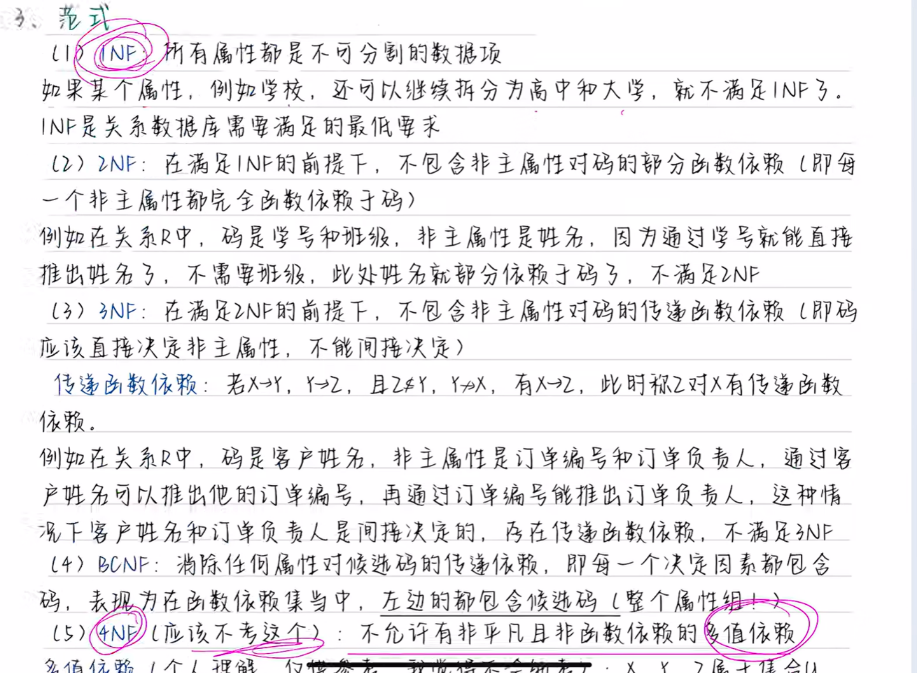 3、范式
(1) 1NF：所有属性都是不可分割的数据项
如果某个属性，例如学校，还可以继续拆分为高中和大学，就不满足1NF了。
1NF是关系数据库需要满足的最低要求
(2) 2NF：在满足1NF的前提下，不包含非主属性对码的部分函数依赖（即每
一个非主属性都完全函数依赖于码）
例如在关系R中，码是学号和班级，非主属性是姓名，因为通过学号就能直接
推出姓名了，不需要班级，此处姓名就部分依赖于码了，不满足2NF
(3) 3NF：在满足2NF的前提下，不包含非主属性对码的传递函数依赖（即码
应该直接决定非主属性，不能间接决定）
传递函数依赖：若X→Y，Y→Z，且Z⊄Y，Y↛X，有X→Z，此时称Z对X有传递函数
依赖。
例如在关系R中，码是客户姓名，非主属性是订单编号和订单负责人，通过客
户姓名可以推出他的订单编号，再通过订单编号能推出订单负责人，这种情
况下客户姓名和订单负责人是间接决定的，存在传递函数依赖，不满足3NF
(4) BCNF：消除任何属性对候选码的传递依赖，即每一个决定因素都包含
码，表现为在函数依赖集当中，左边的都包含候选码（整个属性组！）
(5) 4NF（应该不考这个）：不允许有非平凡且非函数依赖的多值依赖
多值依赖（个人理解，仅